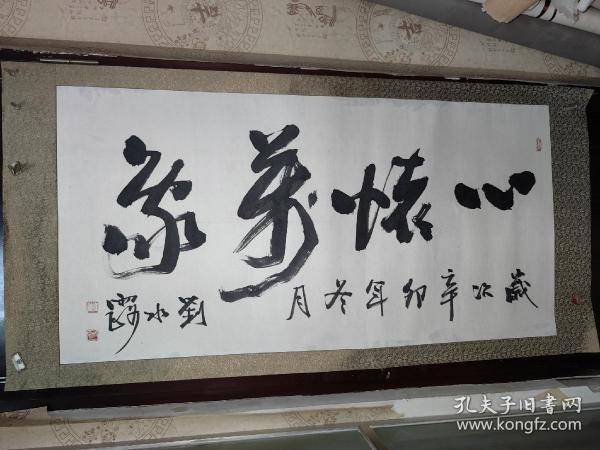 心懷萬象
歲次辛卯年冬月
劉水
孔夫子旧書网
www.kongfz.com